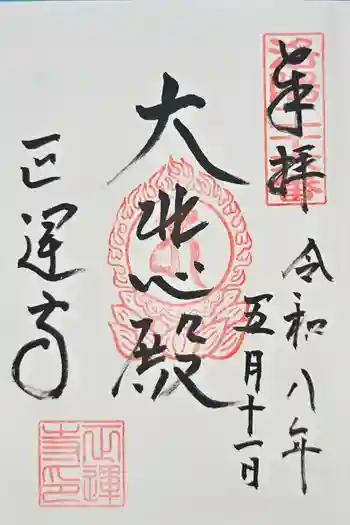 奉拝
令和八年
五月十一日
大悲殿
正運寺
正運
寺印